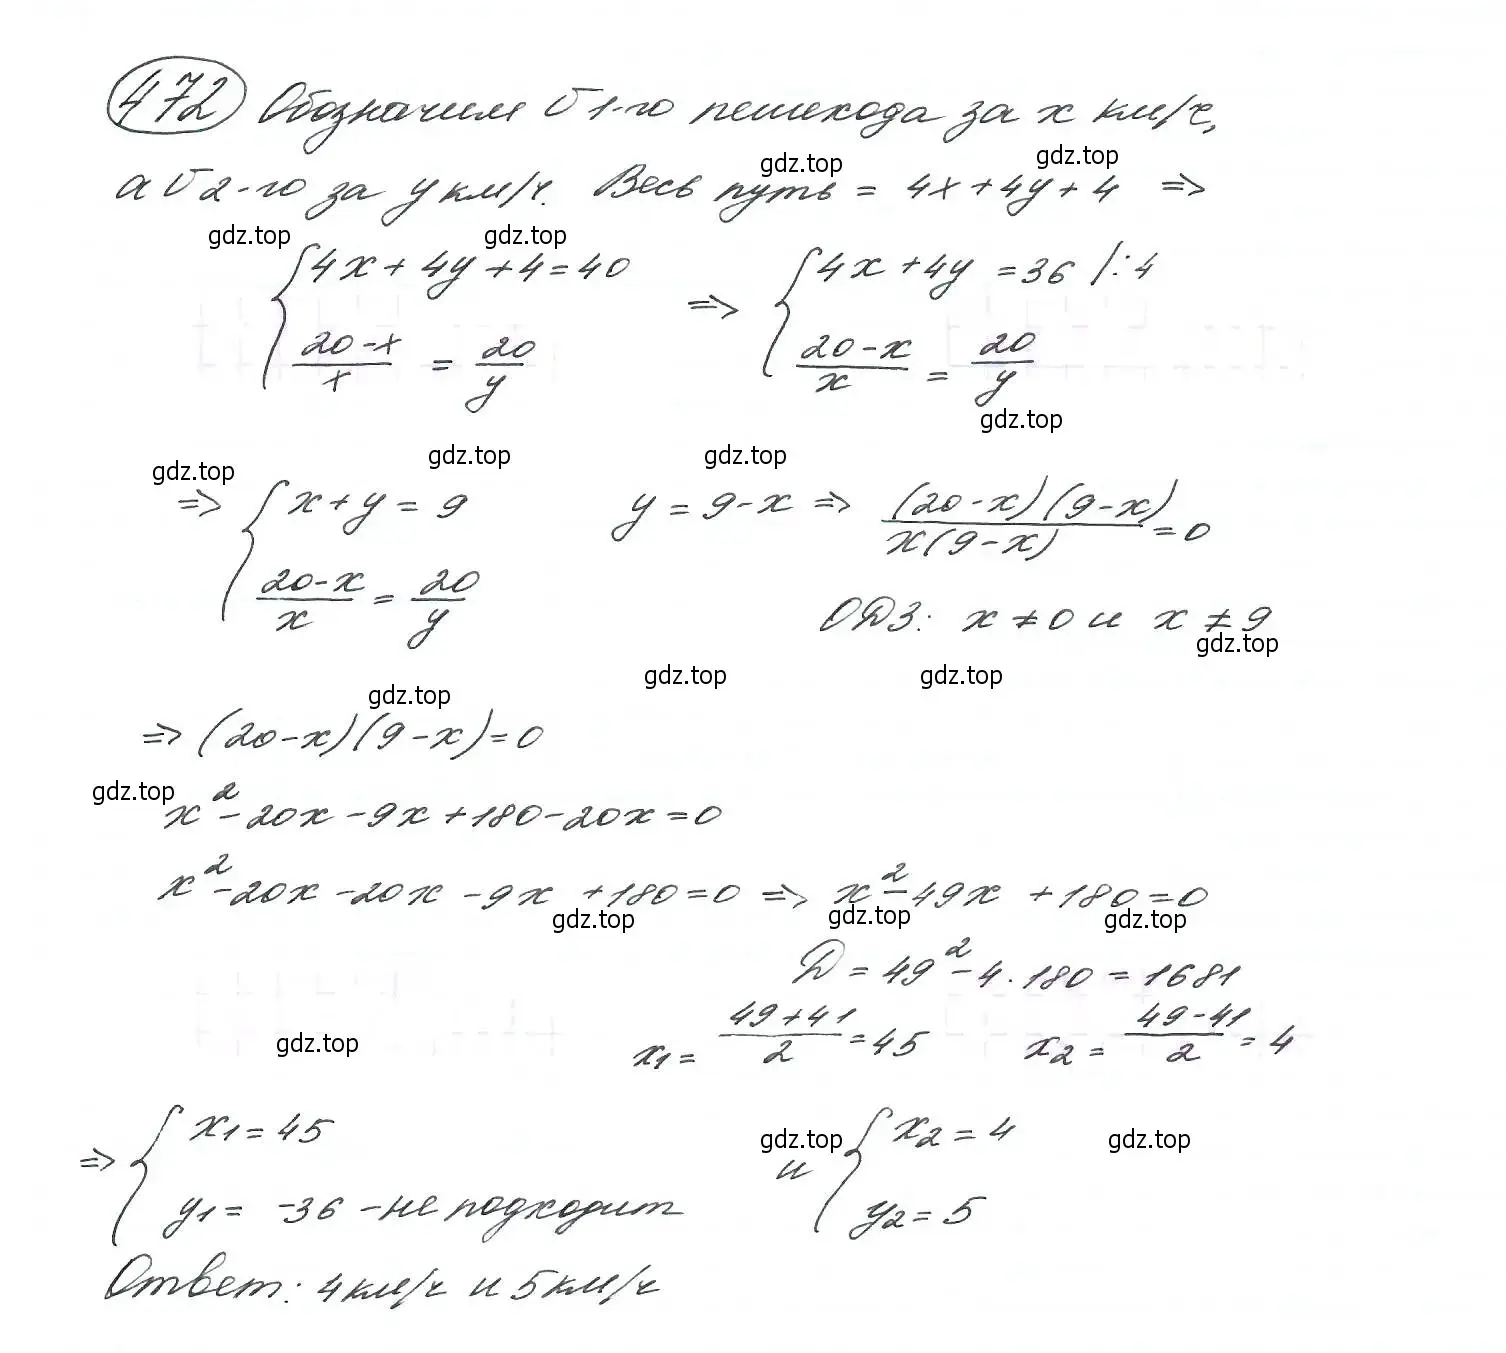 472 Обозначим V 1-го пешехода за x км/ч,
а V 2-го за y км/ч. Весь путь = 4x+4y+4 =>
gdz.top gdz.top
gdz.top gdz.top
{4x+4y+4=40 => {4x+4y=36 /:4
(20-x)/x = 20/y (20-x)/x = 20/y
gdz.top
gdz.top gdz.top gdz.top
=> {x+y=9 y=9-x => (20-x)(9-x)/x(9-x)=0
(20-x)/x = 20/y ОДЗ: x≠0 и x≠9
gdz.top
gdz.top gdz.top gdz.top
=> (20-x)(9-x)=0
gdz.top
x²-20x-9x+180-20x=0
x²-20x-20x-9x+180=0 => x²-49x+180=0
gdz.top gdz.top gdz.top
D=49²-4·180=1681
gdz.top
x1=(49+41)/2=45 x2=(49-41)/2=4
=> {x1=45 и {x2=4
gdz.top gdz.top
y1=-36 -не подходит y2=5
Ответ: 4 км/ч и 5 км/ч